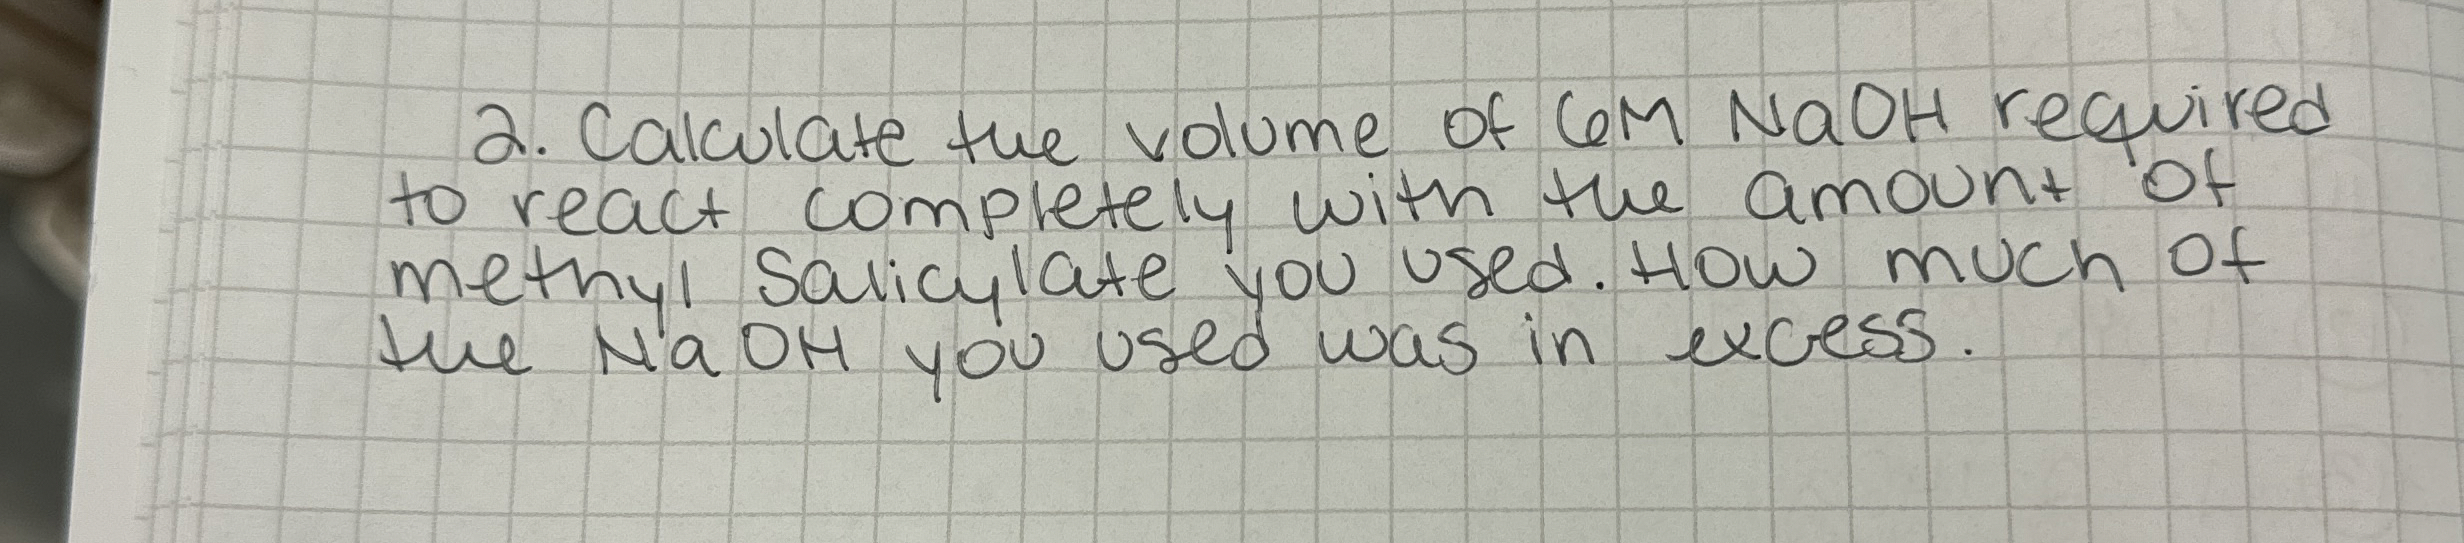 2. Calculate the volume of 6M NaOH required
to react completely with the amount of
methyl salicylate you used. How much of
the NaOH you used was in excess.